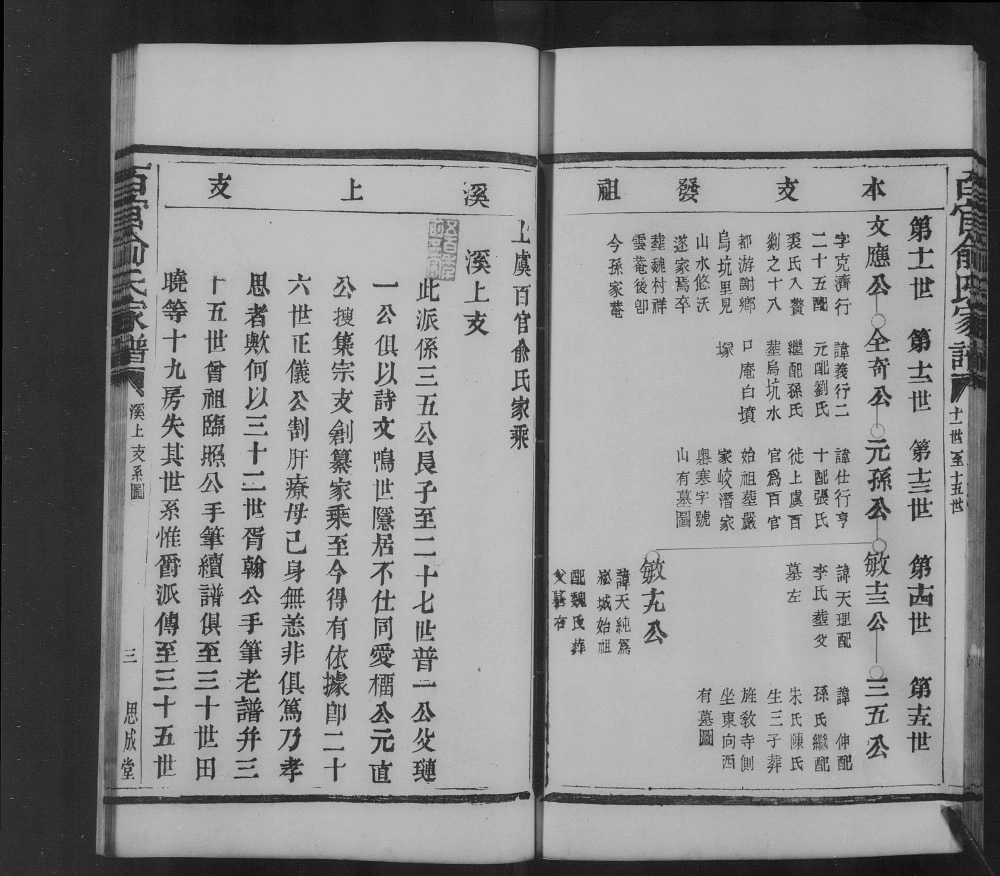 百官俞氏家譜
十一世至十五世
本支發祖
第十一世
第十二世
第十三世
第十四世
第十五世
文應公
全奇公
元孫公
敏十三公
三五公
字克濟行
二十五配
裘氏入贅
剡之十八
都游謝鄉
烏坑里見
山水悠沃
遂家焉卒
葬魏村祥
雲菴後卽
今孫家菴
諱義行二
元配劉氏
繼配孫氏
葬烏坑水
口庵白墳
塚
諱仕行亨
十配張氏
徙上虞百
官爲百官
始祖葬嚴
家峧潛家
嶴寒字號
山有墓圖
諱天理配
李氏葬父
墓左
諱伸配
孫氏繼配
朱氏陳氏
生三子葬
旌敎寺側
坐東向西
有墓圖
敏十九公
諱天純爲
崧城始祖
配魏氏葬
父墓右
溪上支
上虞百官俞氏家乘
溪上支
此派係三五公長子至二十七世普一公父璉
一公俱以詩文鳴世隱居不仕同愛櫺公元直
公搜集宗支創纂家乘至今得有依據卽二十
六世正儀公割肝療母己身無恙非俱篤乃孝
思者歟何以三十二世胥翰公手筆老譜幷三
十五世曾祖臨照公手筆續譜俱至三十世田
曉等十九房失其世系惟爵派傳至三十五世
百官俞氏家譜
溪上支系圖
三
思成堂